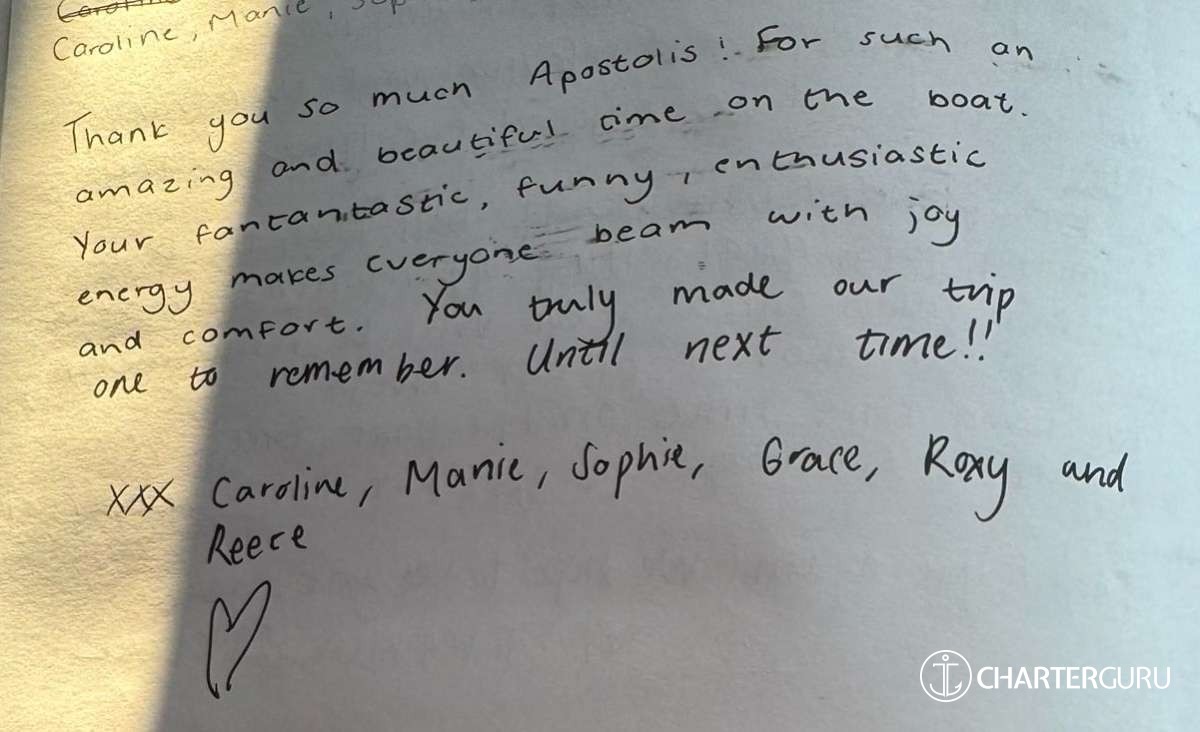 Caroline, Manie,
Thank you so much Apostolis! For such an
amazing and beautiful time on the boat.
Your fantantastic, funny, enthusiastic
energy makes everyone beam with joy
and comfort. You truly made our trip
one to remember. Until next time!!
XXX Caroline, Manie, Sophie, Grace, Roxy and
Reece
CHARTERGURU